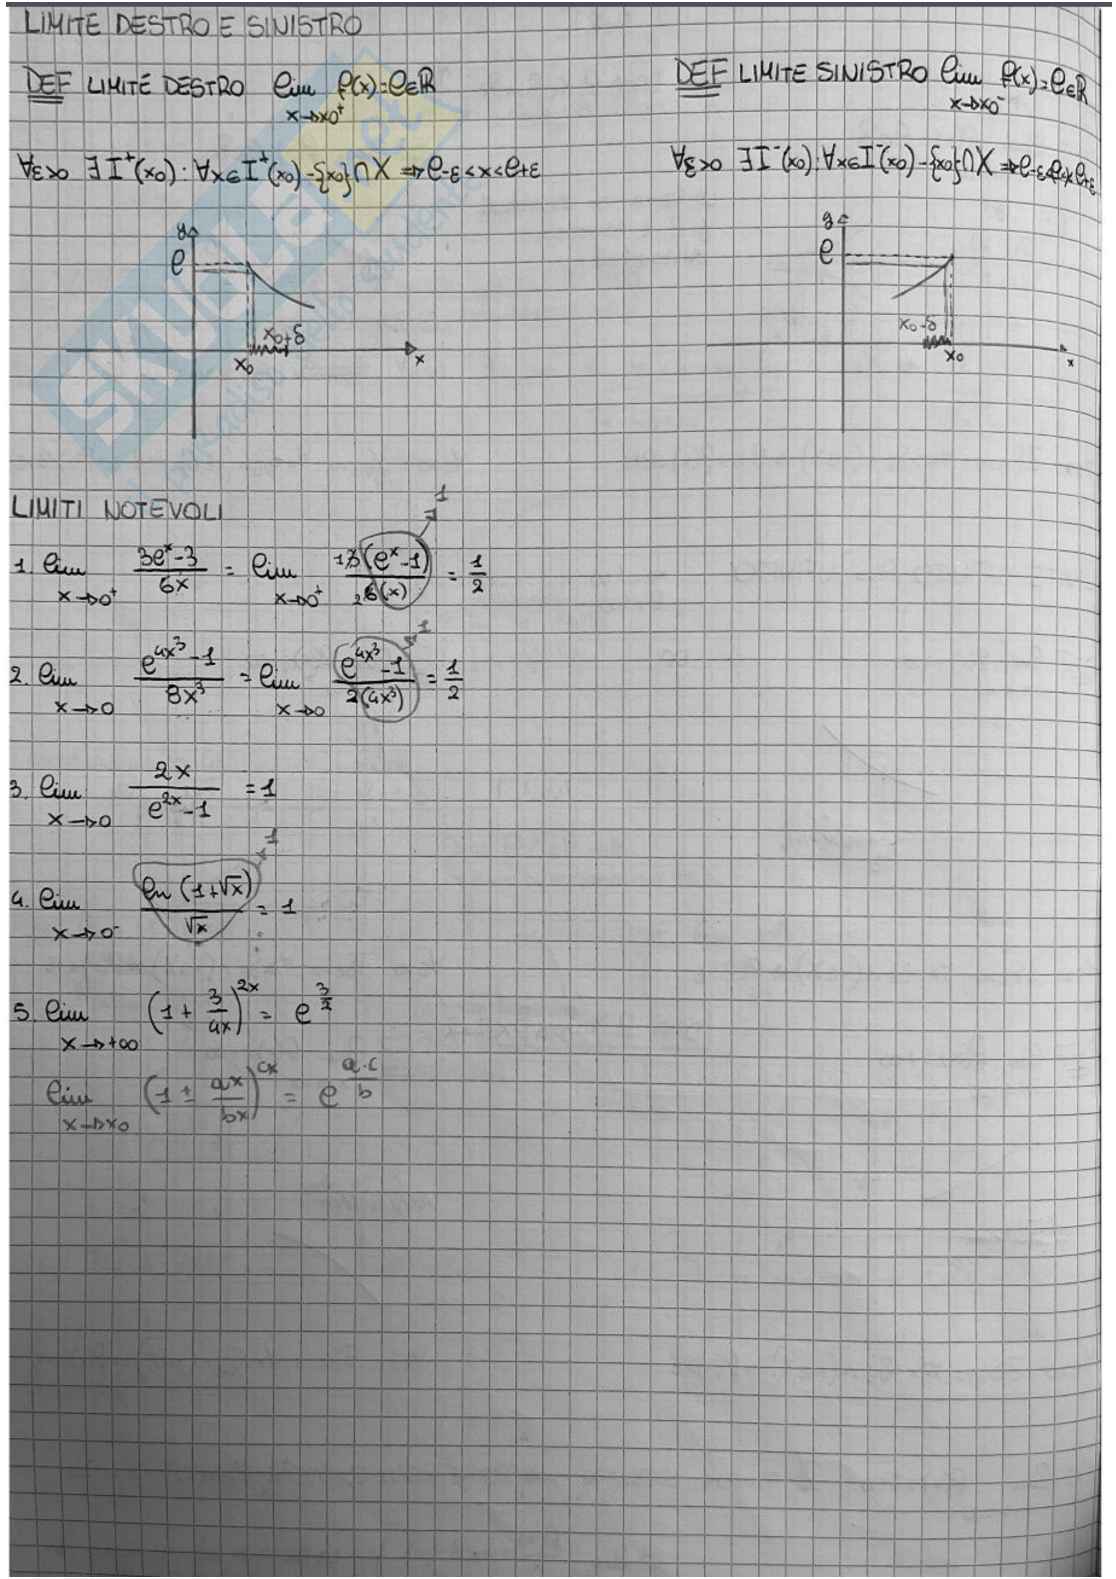 LIMITE DESTRO E SINISTRO
DEF LIMITE DESTRO lim f(x)=l∈R
x→x0⁺
∀ε>0 ∃ I⁺(x0) : ∀x∈I⁺(x0)-{x0}∩X ⇒ l-ε<x<l+ε
y
l
x0+δ
x0
x
DEF LIMITE SINISTRO lim f(x)=l∈R
x→x0⁻
∀ε>0 ∃I⁻(x0) : ∀x∈I⁻(x0)-{x0}∩X ⇒ l-ε<x<l+ε
y
l
x0-δ
x0
x
SKUOLA.net
LIMITI NOTEVOLI
1. lim x→0⁺ (3eˣ-3)/(6x) = lim x→0⁺ 1 3(eˣ-1)/(2 6(x)) → 1 = 1/2
2. lim x→0 (e^(4x³)-1)/(8x³) = lim x→0 (e^(4x³)-1)/(2(4x³)) → 1 = 1/2
3. lim x→0 2x/(e^(2x)-1) = 1
4. lim x→0⁻ ln(1+√x)/√x → 1 = 1
5. lim x→+∞ (1+3/(4x))^(2x) = e^(3/2)
lim x→x0 (1±ax/(bx))^(cx) = e^(a·c/b)